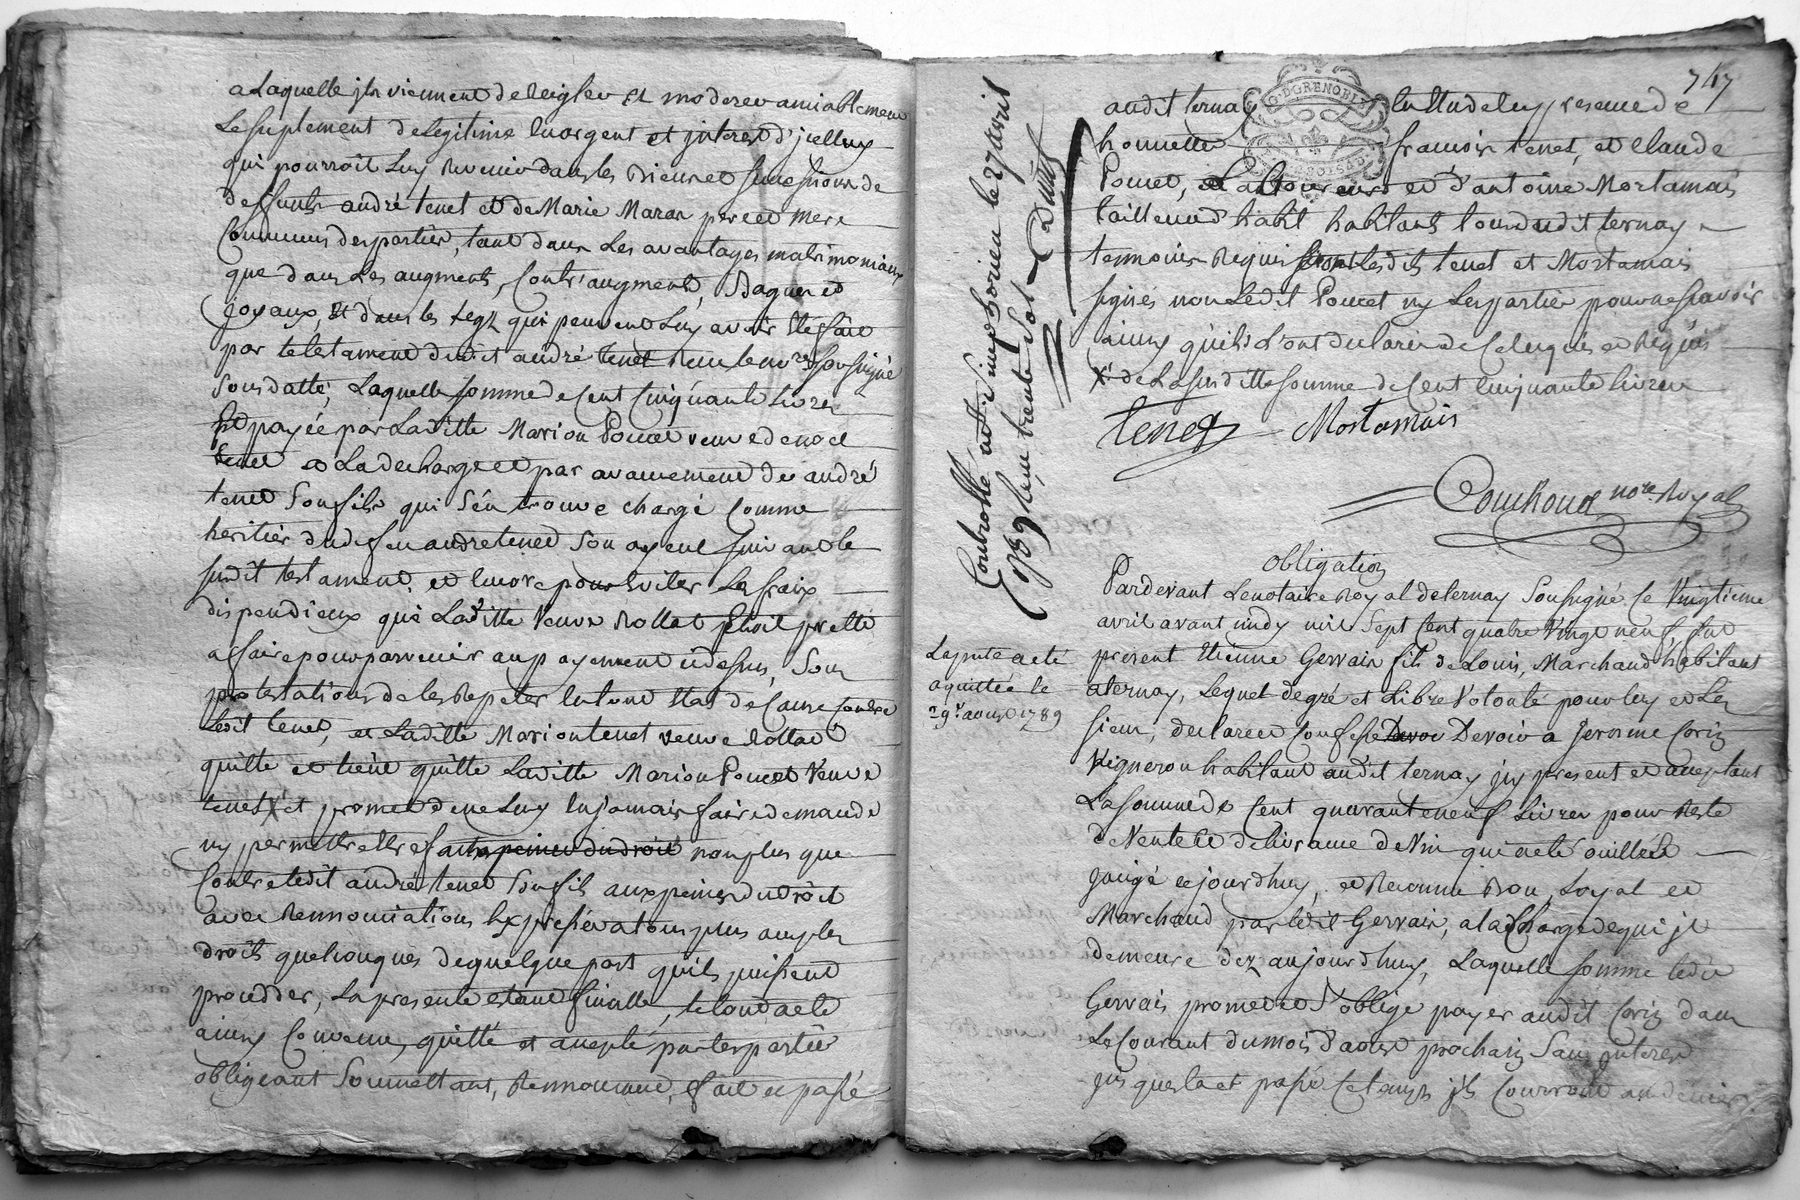 a Laquelle jls viennent de Reigler Et moderer amiablement
Le suplement de Legitime En argent et jnterest d'jcelluy
qui pourroit Luy Revenir dans les Biens et successions de
deffunts andré tenet et de Marie Maran pere et mere
Communs des parties, tant dans Les avantages matrimoniaux
que dans Les augment, Contr'augment, Bagues et
joyaux, Et dans les Legz qui peuvent Luy avoir Eté fait
par le testament dudit andré tenet Reçu le nore soussigné
Sous datte, Laquelle somme de Cent Cinquante Livres
Est payée par Laditte Marion Poncet veuve de
tenet a La decharge et par avancement de andré
tenet Son fils qui S'en trouve chargé Comme
heritier dudeffeu andre tenet Son ayeul suivant le
susdit testament, et Encore pour Eviter Les fraix
dispendieux que Laditte Veuve Rollat Etoit prette
a faire pour parvenir au payement Cidessus, Sous
protestations de les Repeter En tout Etat de Cause Contre
Ledit tenet, et Laditte Marion tenet veuve Rollat
quitte et tient quitte Laditte Marion Poncet Veuve
tenet X et promet de ne Luy En jamais faire demande
ny permettre Etre faite peines du droit non plus que
Contre ledit andré tenet Son fils aux peines du droit
avec Rennonciations Expresse a tous plus amples
droits quelconques de quelque part quils puissent
proceder, La presente etant finalle, le tout a eté
ainsy Convenu, quitté et accepté par les parties
obligeant Soumettant, Rennonceant, fait et passé
747
audit ternay En Etude En presence de
honnette francois tenet, et Claude
Poncet, Laboureurs et d'antoine Mortamais
tailleur d'habit habitants tous dudit ternay
temoins Requis Lesdits tenet et Mortamais
signés non Ledit Poncet ny Les parties pour ne sçavoir
ainsy qu'ils L'ont declaré de Ce Enquis et Requis
X de La susditte somme de Cent Cinquante Livres
tenet Mortamais
Couchoud nore Royal
Controllé au St simphorien le 27 avril
1789 Reçu trente Sols
obligation
Pardevant Le notaire Royal de ternay Soussigné Ce Vingtieme
avril avant midy mil Sept Cent quatre Vingt neuf, fut
present Etienne Gervais fils de Louis, Marchand habitant
a ternay, Lequel de gré et Libre Volonté pour luy et Les
siens, declare et Confesse Devoir a Jerome Coriz
Vigneron habitant audit ternay jcy present et acceptant
La somme de Cent quarante neuf Livres pour Reste
de Vente Et delivrance de Vin qui a eté ouillée
jaugé cejourdhuy, et Reconnu Bon Loyal et
Marchand par ledit Gervais, a la Charge de qui jl
demeure dez aujourdhuy, Laquelle somme ledit
Gervais promet et S'oblige payer audit Coriz dans
Le Courant du mois d'aoust prochain Sans jnterest
jusques la et passé Ce temps jls Courront au denier
La pnte a eté
aquittée le
29e aoust 1789